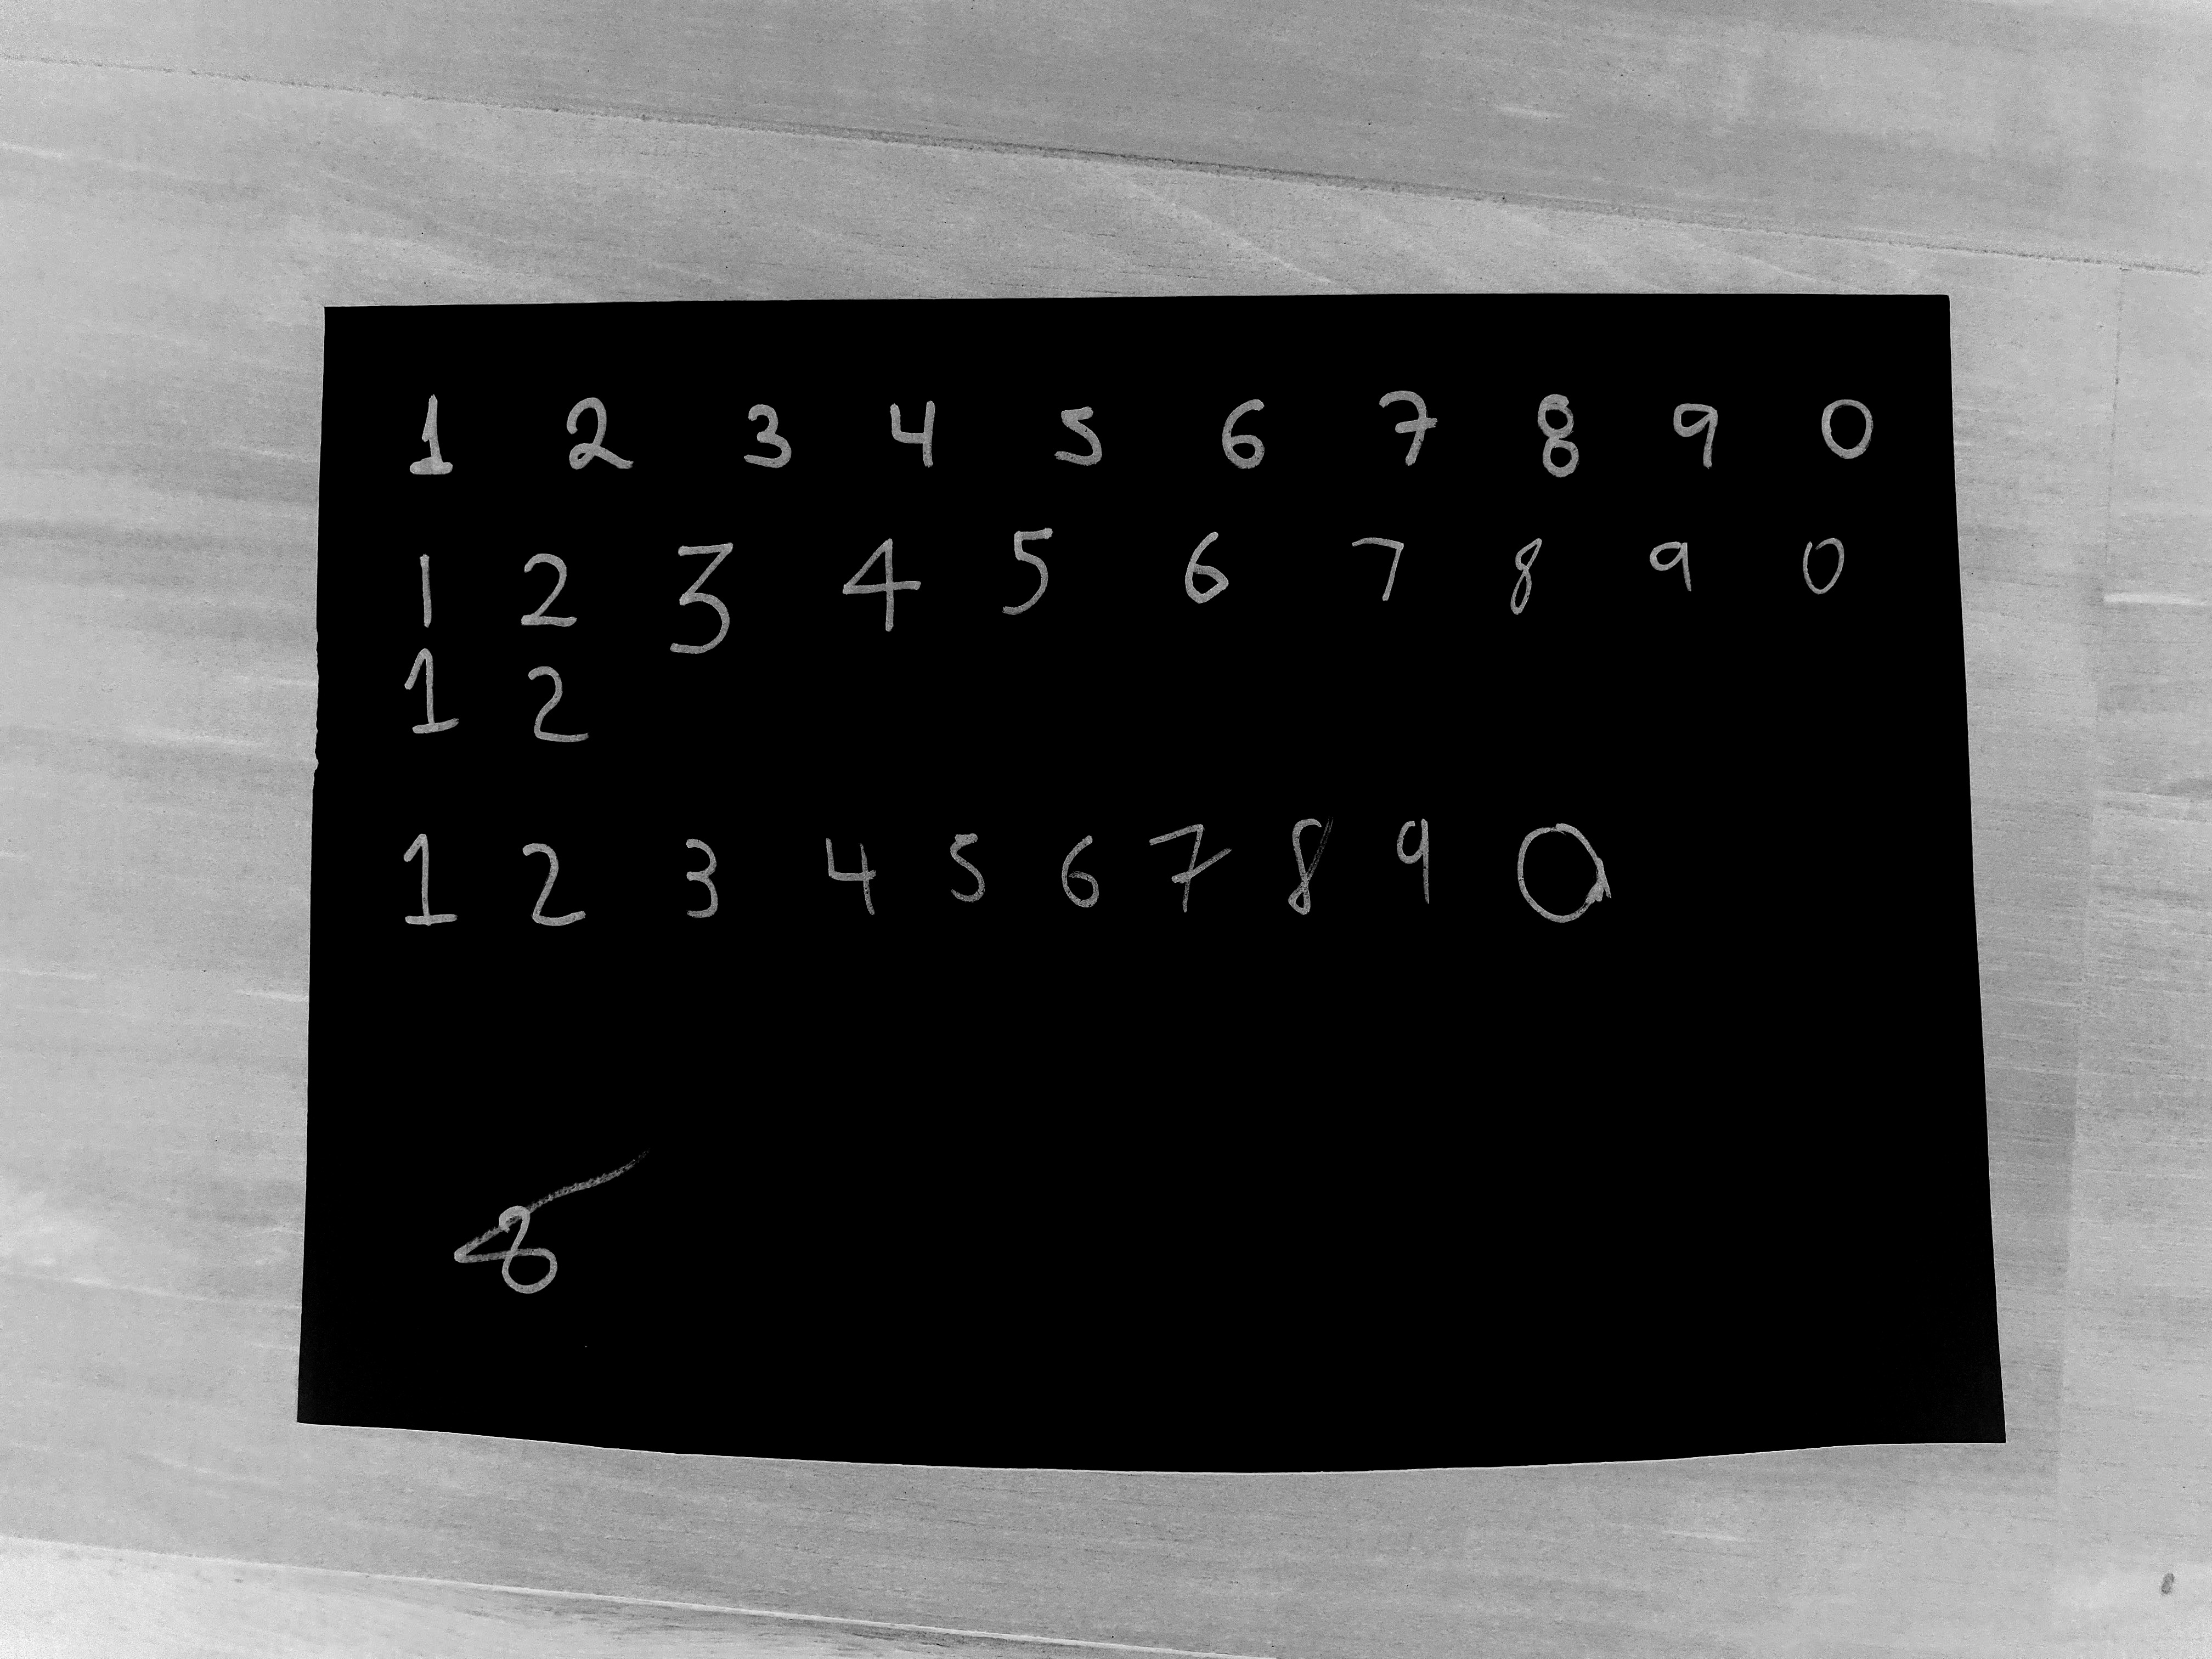 1 2 3 4 5 6 7 8 9 0
1 2 3 4 5 6 7 8 9 0
1 2
1 2 3 4 5 6 7 8 9 0
8